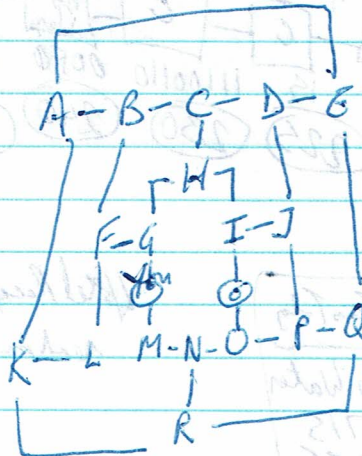 A - B - C - D - E
H
F - G I - J
You 6
K - L M - N - O - P - Q
R